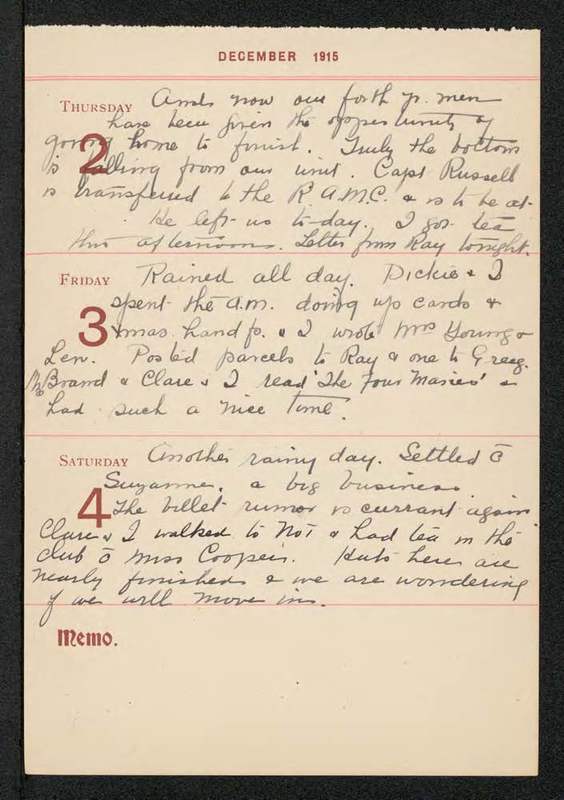 DECEMBER 1915
THURSDAY And now our forth yr. men
2 have been given the opportunity of
going home to finish. Truly the bottom
is falling from our unit. Capt Russell
is transfered to the R.A.M.C. & is to be at-
He left us to-day. I got tea
this afternoon. Letter from Ray tonight.
FRIDAY Rained all day. Dickie & I
3 spent the a.m. doing up cards &
Xmas handfs. & I wrote Mrs Young &
Len. Posted parcels to Ray & one to Greeg.
Brand & Clare & I read 'The Four Maries' &
had such a nice time.
SATURDAY Another rainy day. Settled c̄
4 Suzanne, a big business.
The billet rumor is currant again
Clare & I walked to No 1 & had tea in the
club c̄ Miss Cooper. Huts here are
nearly finished & we are wondering
if we will move in.
Memo.